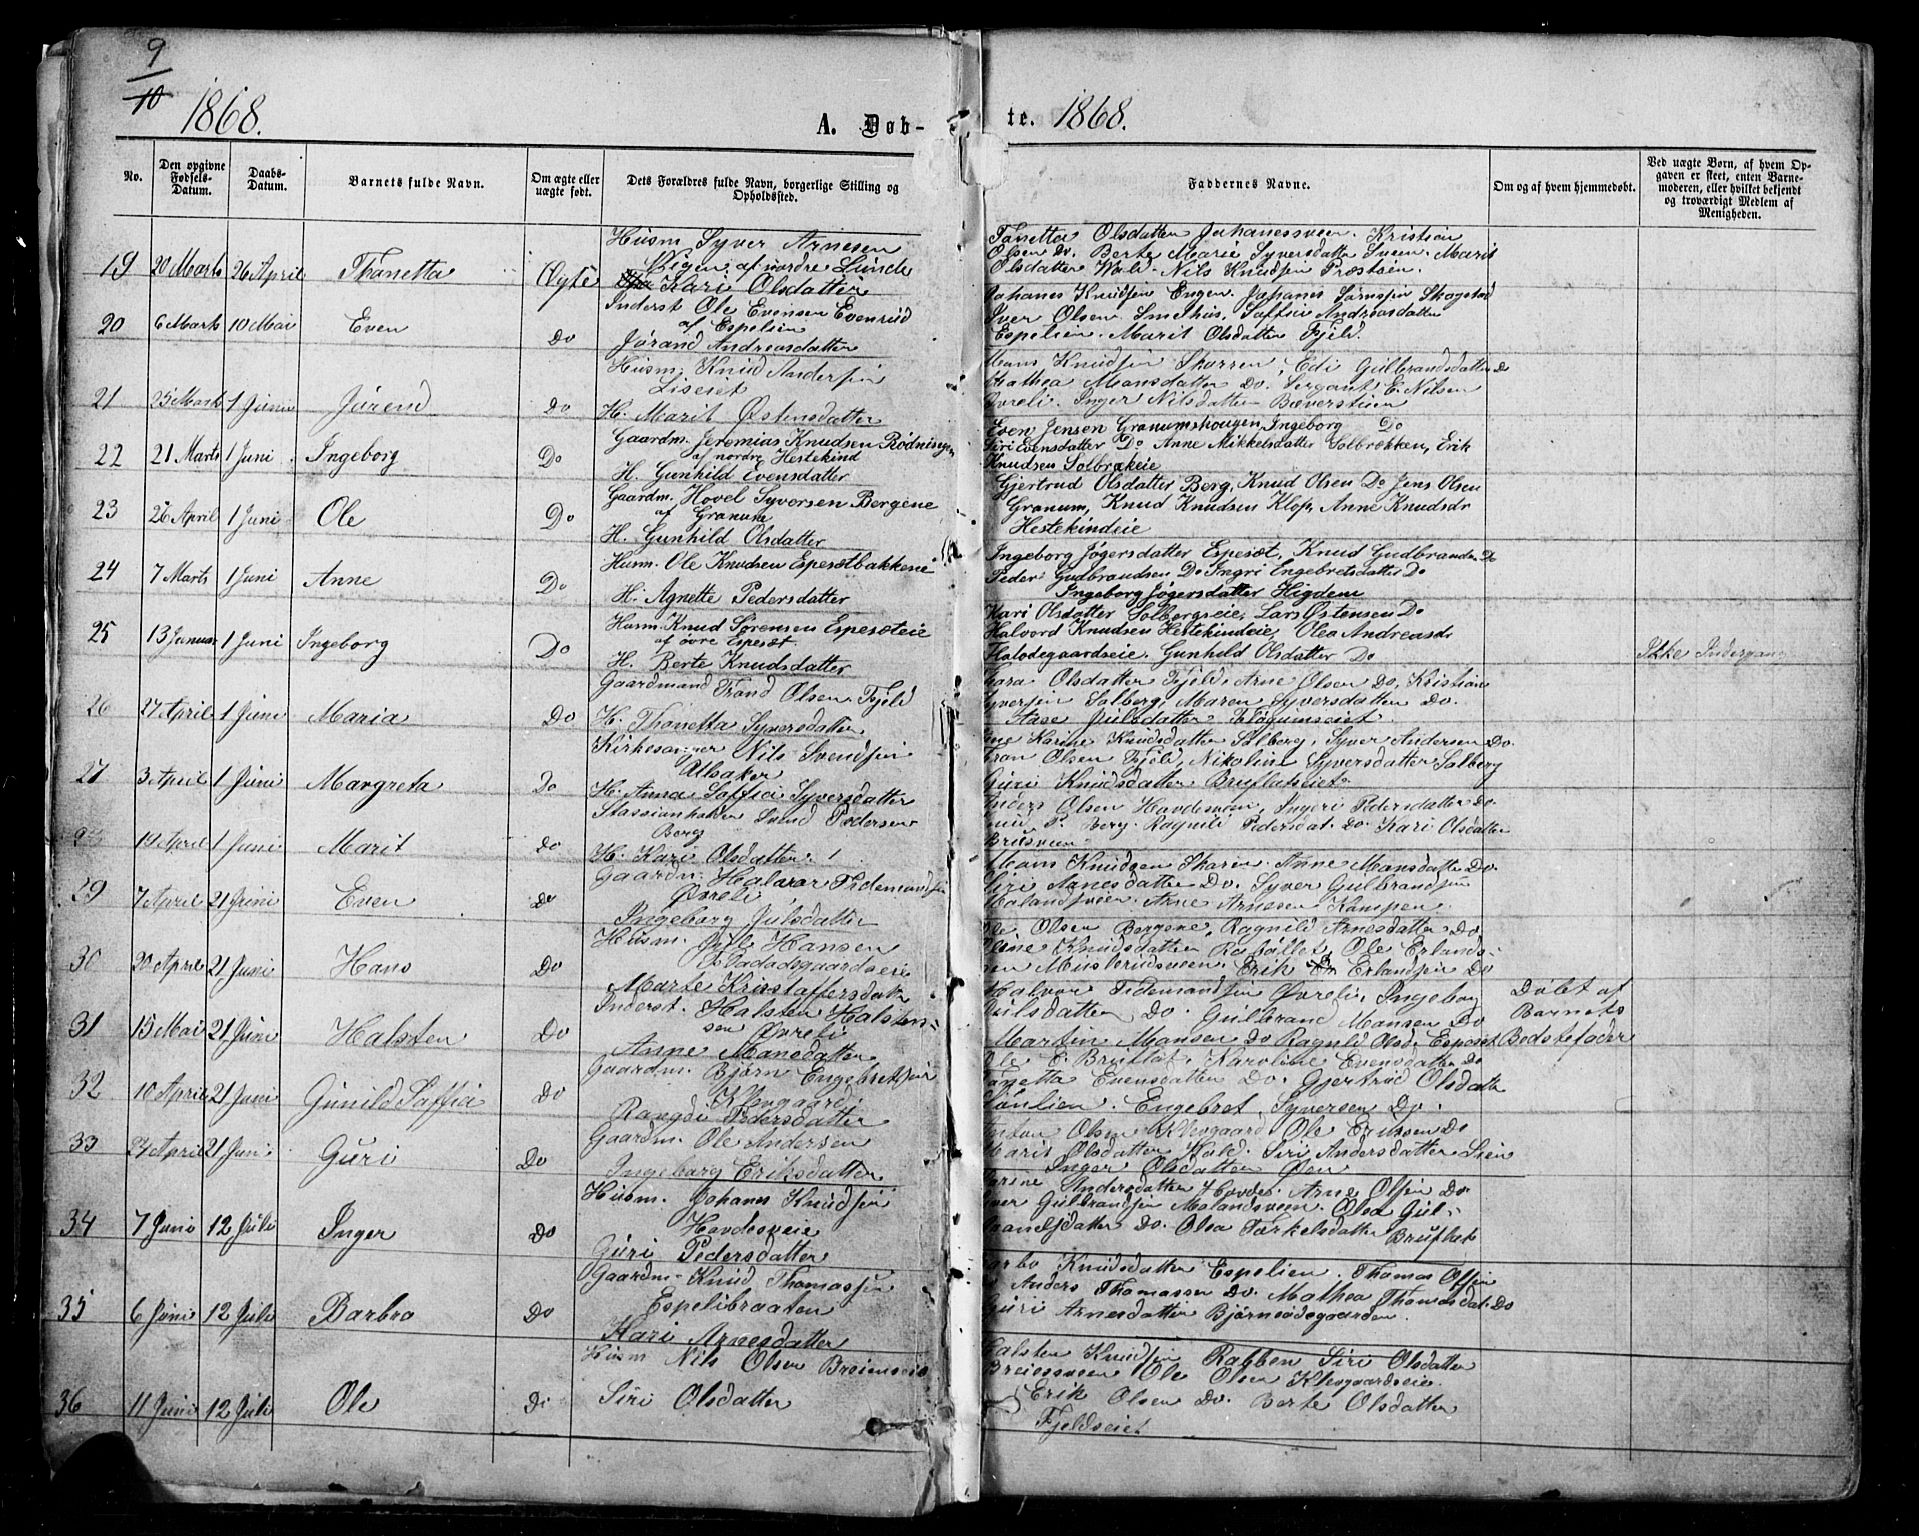 9
10
1868.
A. Døb-
te. 1868.
No.
Den opgivne Fødsels-Datum.
Daabs-Datum.
Barnets fulde Navn.
Om ægte eller uægte født.
Dets Forældres fulde Navn, borgerlige Stilling og Opholdssted.
Faddernes Navne.
Om og af hvem hjemmedøbt.
Ved uægte Børn, af hvem Op-
gaven er skeet, enten Barne-
moderen, eller hvilket bekjendt
og troværdigt Medlem af
Menigheden.
19 20 Marts 26 April Thonetta Ægte
Husm Syver Arnesen
Øigen af nordre Lunde
Kari Olsdatter
Tonetta Olsdatter Johanessveen. Kristian
Olsen Do. Berte Marie Syversdatter Sveen. Marit
Olsdatter Wold. Nils Knudsen Præstøen.
20 6 Marts 10 Mai Even Do
Inderst Ole Evensen Evenrud
af Espelien
Jørand Andreasdatter
Johanes Knudsen Engen. Johanes Skogstad
Iver Olsen Smehus, Saffia Andreasdatter
Espelien. Marit Olsdatter Fjeld.
21 25 Marts 1 Juni Jørend Do
Husm. Knud Andersen
Liseiet
H. Marit Østensdatter
Mans Knudsen Skarren, Edi Gulbrandsdatter Do
Mathea Mansdatter Do. Sergant E. Nilsen
Øvreli. Inger Nilsdatter Bæverstuen
22 21 Marts 1 Juni Ingeborg Do
Gaardm. Jeremias Knudsen Rødningen
af nordre Hestekind
H. Gunhild Evensdatter
Even Jensen Granumshougen, Ingeborg Do
Siri Evensdatter Do Anne Mikkelsdatter Solbrækken, Erik
Knudsen Solbrækeie
23 26 April 1 Juni Ole Do
Gaardm. Hovel Syversen Bergene
af Granum
H. Gunhild Olsdatter
Gjertrud Olsdatter Berg, Knud Olsen Do Jens Olsen
Granum, Knud Knudsen Klop, Anne Knudsdr
Hestekindeie
24 7 Marts 1 Juni Anne Do
Husm. Ole Knudsen Espesætbakkene
H. Agnette Pedersdatter
Ingeborg Jøgersdatter Espesæt, Knud Gudbrands. Do
Peder Gudbrandsen Do Ingri Engebretsdatter Do
Ingeborg Jøgersdatter Higdem
25 13 Januar 1 Juni Ingeborg Do
Husm. Knud Sørensen Espesæteie
af øvre Espesæt
H. Berte Knudsdatter
Kari Olsdatter Solbergseie, Lars Østensen Do
Halvord Knudsen Hestekindeie, Olea Andreasdr
Flatødegaardseie. Gunhild Olsdatter Do
Ikke Indergang
26 27 April 1 Juni Maria Do
Gaardmand Trand Olsen Fjeld
H. Thonetta Syversdatter
Olsdatter Fjeld, Arne Olsen Do, Kristian
Syversen Solberg, Maren Syversdatter Do.
Aase Julsdatter
27 3 April 1 Juni Margreta Do
Kirkesanger Nils Svendsen
Allsaker
H. Anna Saffia Syversdatter
Karine Knudsdatter Solberg, Syver Andersen Do.
Tran Olsen Fjeld, Nikoline Syversdatter Solberg
Guri Knudsdatter Bruflateiet
28 19 April 1 Juni Marit Do
Stassionholder Svend Pedersen
Berg
H. Kari Olsdatter
Anders Olsen Havdesmoen, Ingeri Pedersdatter Do.
P. Berg. Ragnild Pedersdat. Do. Kari Olsdatter
29 7 April 21 Juni Even Do
Gaardm. Halvor Tidemandsen
Øvreli
Ingeborg Julsdatter
Mans Knudsen Skaren. Anne Mansdatter Do.
Siri Arnesdatter Do. Syver Gulbrandsen
Molandsveen. Arne Arnesen Kampen.
30 20 April 21 Juni Hans Do
Husm. Jule Hansen
Marte Kristaffersdatr
Ole Olsen Bergene, Ragnild Arnesdatter Do
Knudsdatter Ole Erlands-
sen Erik Erlandsen Do
31 15 Mai 21 Juni Halsten Do
Inderst. Halsten Halsten-
sen Øvreli
Anne Mansdatter
Halvor Tidemandsen Øvreli, Ingeborg
Julsdatter Do. Gulbrand Mansen Do
Martin Mansen Do Ragnild Olsd. Espeset
Døbt af
Barnets
Bedstefader
32 10 April 21 Juni Gunild Saffia Do
Gaardm. Bjørn Engebretsen
Klevgaard
Rangdi Pedersdatter
Ole E. Bruflat. Karoline Evensdatter Do
Tonetta Evensdatter Do. Gjertrud Olsdatter
Engebret Syversen Do.
33 27 April 21 Juni Guri Do
Gaardm. Ole Andersen
Ingeborg Eriksdatter
Anton Olsen Klevgaard. Ole Eriksen Do
Marit Olsdatter Hald. Siri Andersdatter Lien
Inger Olsdatter Øen
34 7 Juni 12 Juli Inger Do
Husm. Johans Knudsen
Havdesveie
Guri Pedersdatter
Karine Andersdatter Havdes. Arne Olsen Do.
Syver Gulbrandsen Molandsveen. Olea Gul-
brandsdatter Do. Olea Torkelsdatter Bruflat
35 6 Juni 12 Juli Barbro Do
Gaardm. Knud Thomassen
Espelibraaten
Kari Arnesdatter
Barbo Knudsdatter Espelien. Thomas Olsen
Do Anders Thomassen Do. Mathea Thomasdat. Do
Guri Arnesdatter Bjørnødegaarden.
36 11 Juni 12 Juli Ole Do
Husm Nils Olsen Breienseie
Siri Olsdatter
Halsten Knudsen Rabben Siri Olsdatter
Breiesveen Ole Olsen Klevgaardseie.
Erik Olsen Do. Berte Olsdatter
Fjeldseiet